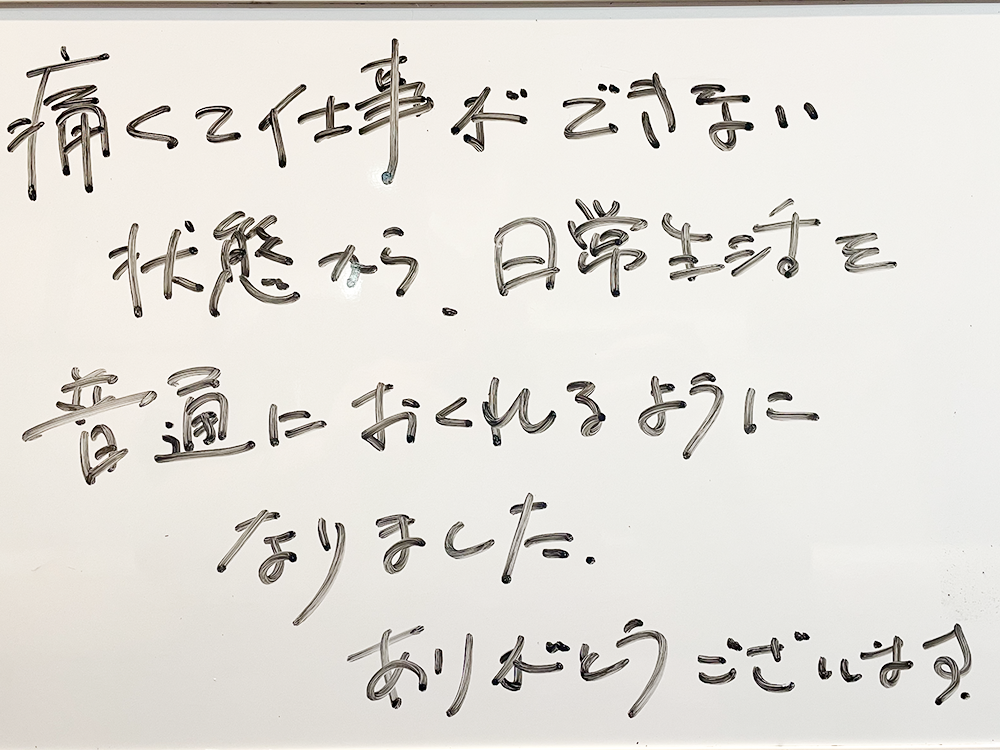 痛くて仕事ができない
状態から、日常生活を
普通におくれるように
なりました.
ありがとうございます!